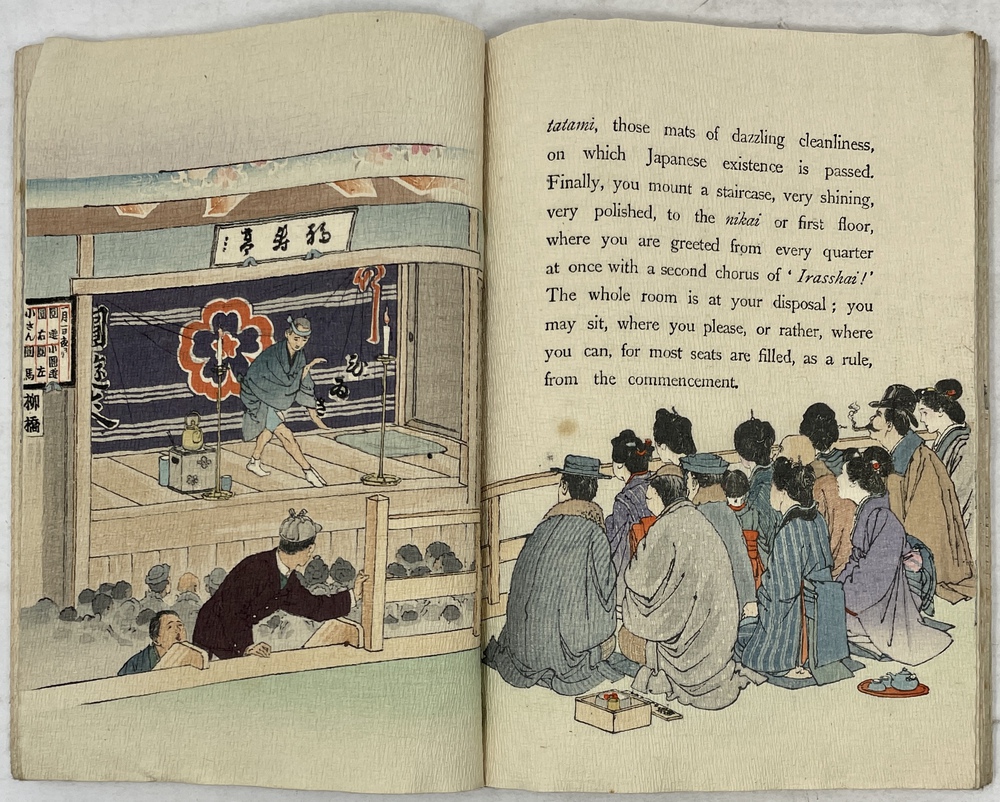 亭壽福
二月一日夜ゟ
圓遊
小圓遊
圓右
圓左
小さん
圓馬
柳橋
圓遊
tatami, those mats of dazzling cleanliness,
on which Japanese existence is passed.
Finally, you mount a staircase, very shining,
very polished, to the nikai or first floor,
where you are greeted from every quarter
at once with a second chorus of ‘ Irasshai!’
The whole room is at your disposal ; you
may sit, where you please, or rather, where
you can, for most seats are filled, as a rule,
from the commencement.